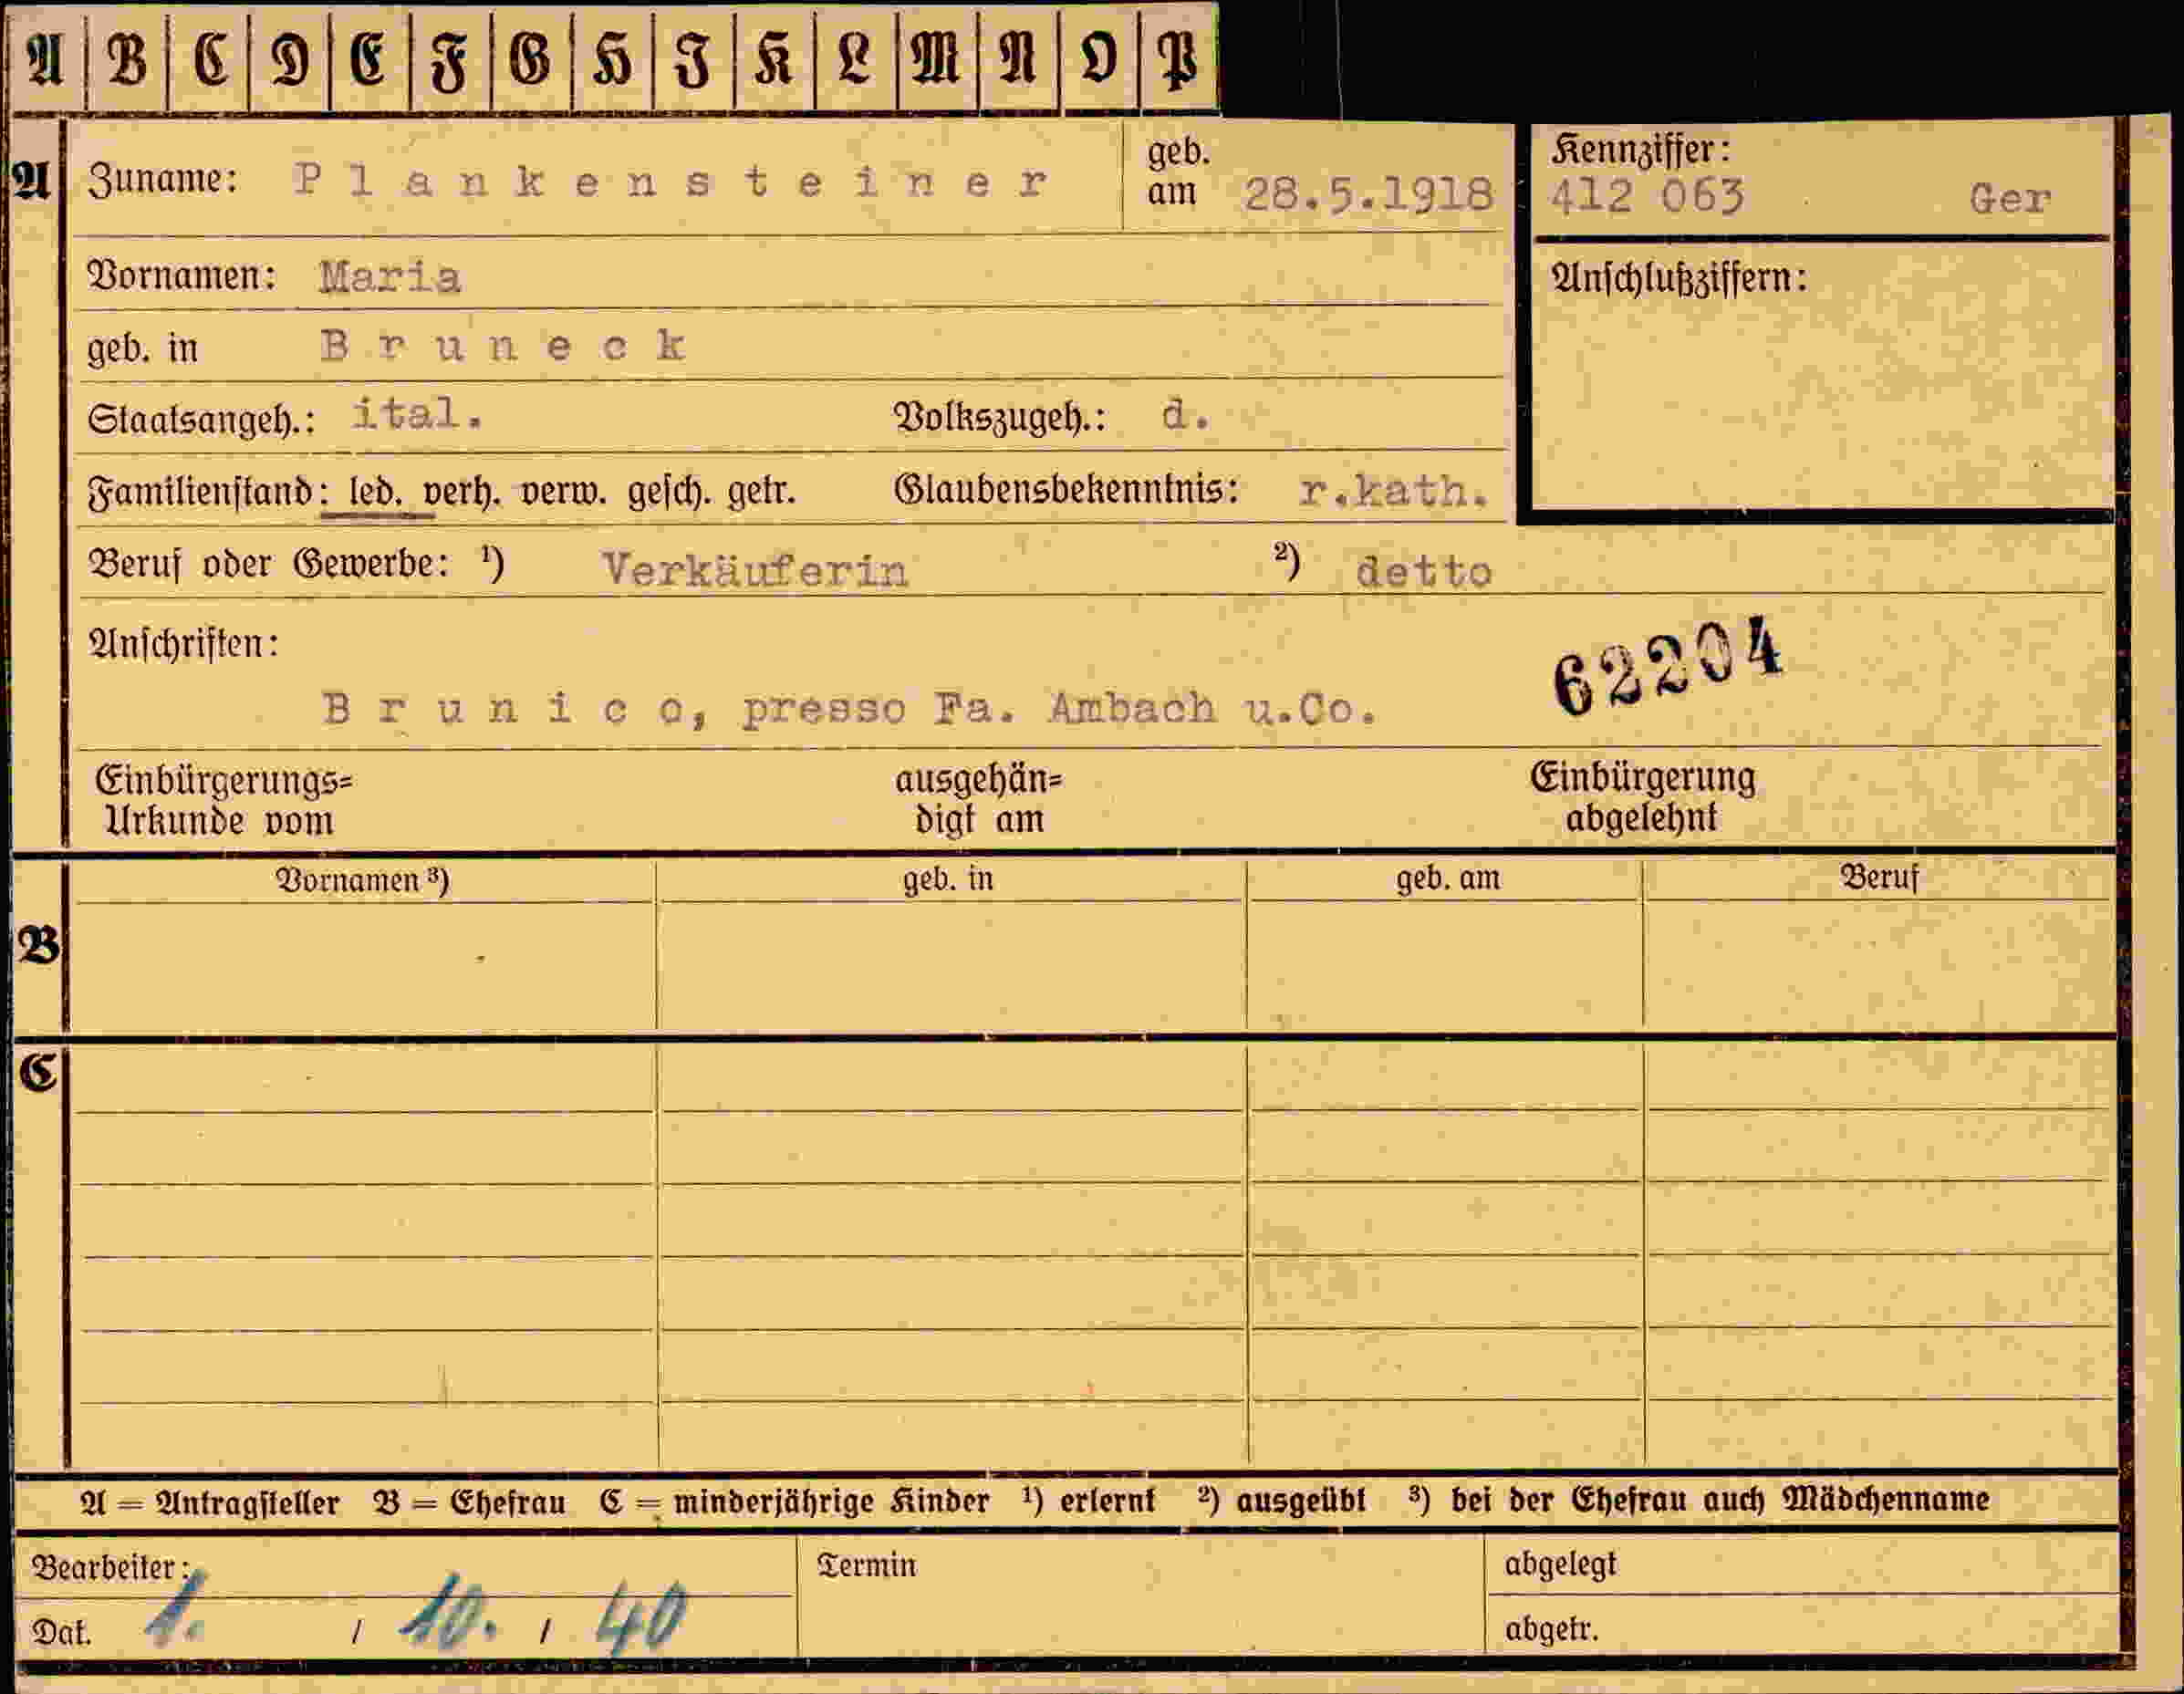 A B C D E F G H J K L M N O P
A Zuname: Plankensteiner geb. am 28.5.1918
Kennziffer:
412 063 Ger
Vornamen: Maria
Anschlußziffern:
geb. in Bruneck
Staatsangeh.: ital. Volkszugeh.: d.
Familienstand: led. verh. verw. gesch. getr. Glaubensbekenntnis: r.kath.
Beruf oder Gewerbe: ¹) Verkäuferin ²) detto
Anschriften:
62204
Brunico, presso Fa. Ambach u.Co.
Einbürgerungs= ausgehän= Einbürgerung
Urkunde vom digt am abgelehnt
Vornamen ³) geb. in geb. am Beruf
B
C
A = Antragsteller B = Ehefrau C = minderjährige Kinder ¹) erlernt ²) ausgeübt ³) bei der Ehefrau auch Mädchenname
Bearbeiter: Termin abgelegt
Dat. 1. / 10. / 40 abgetr.